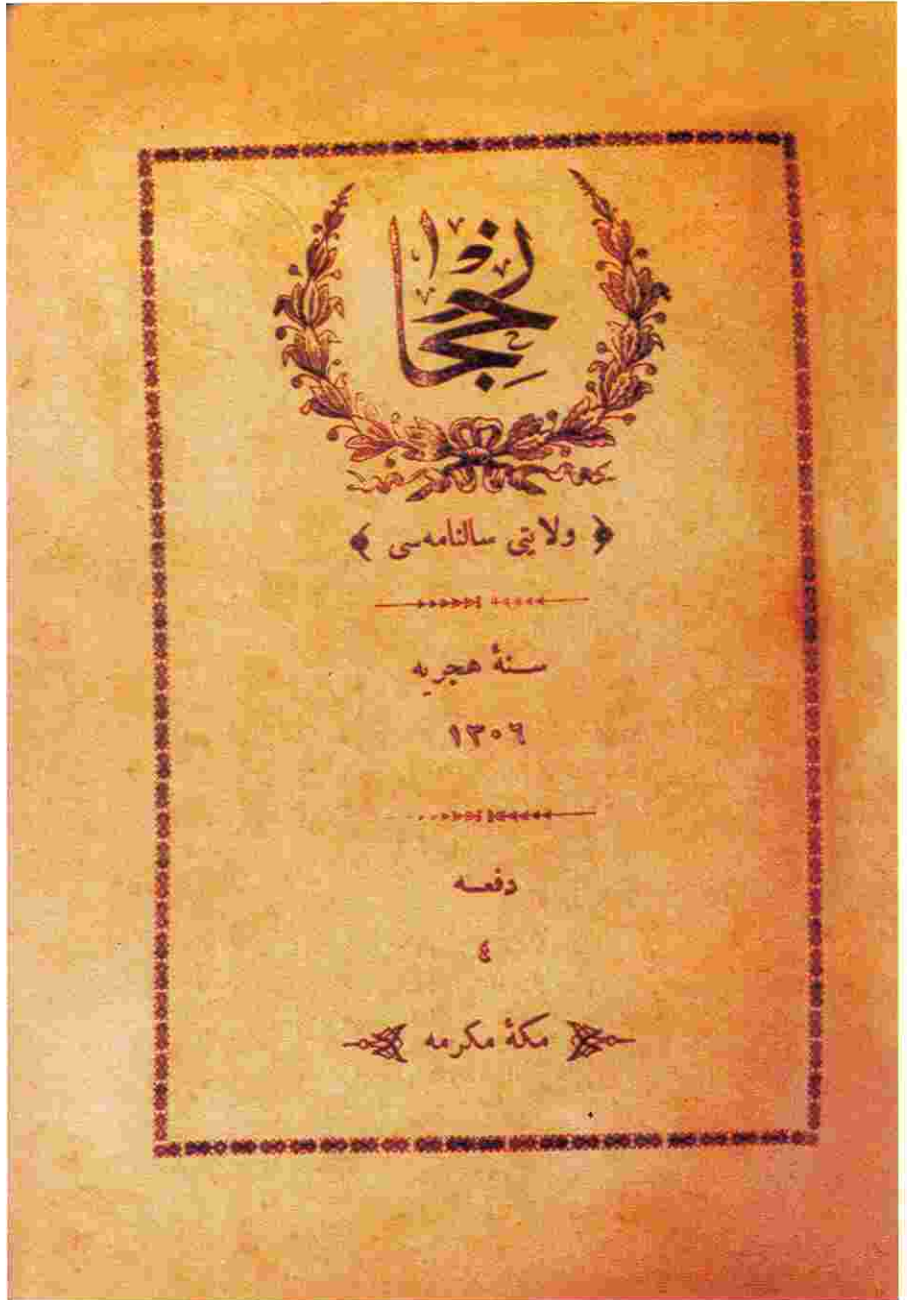 حجاز
﴿ ولايتى سالنامه‌سى ﴾
سنهٔ هجريه
١٣٠٦
دفعه
٤
مكهٔ مكرمه